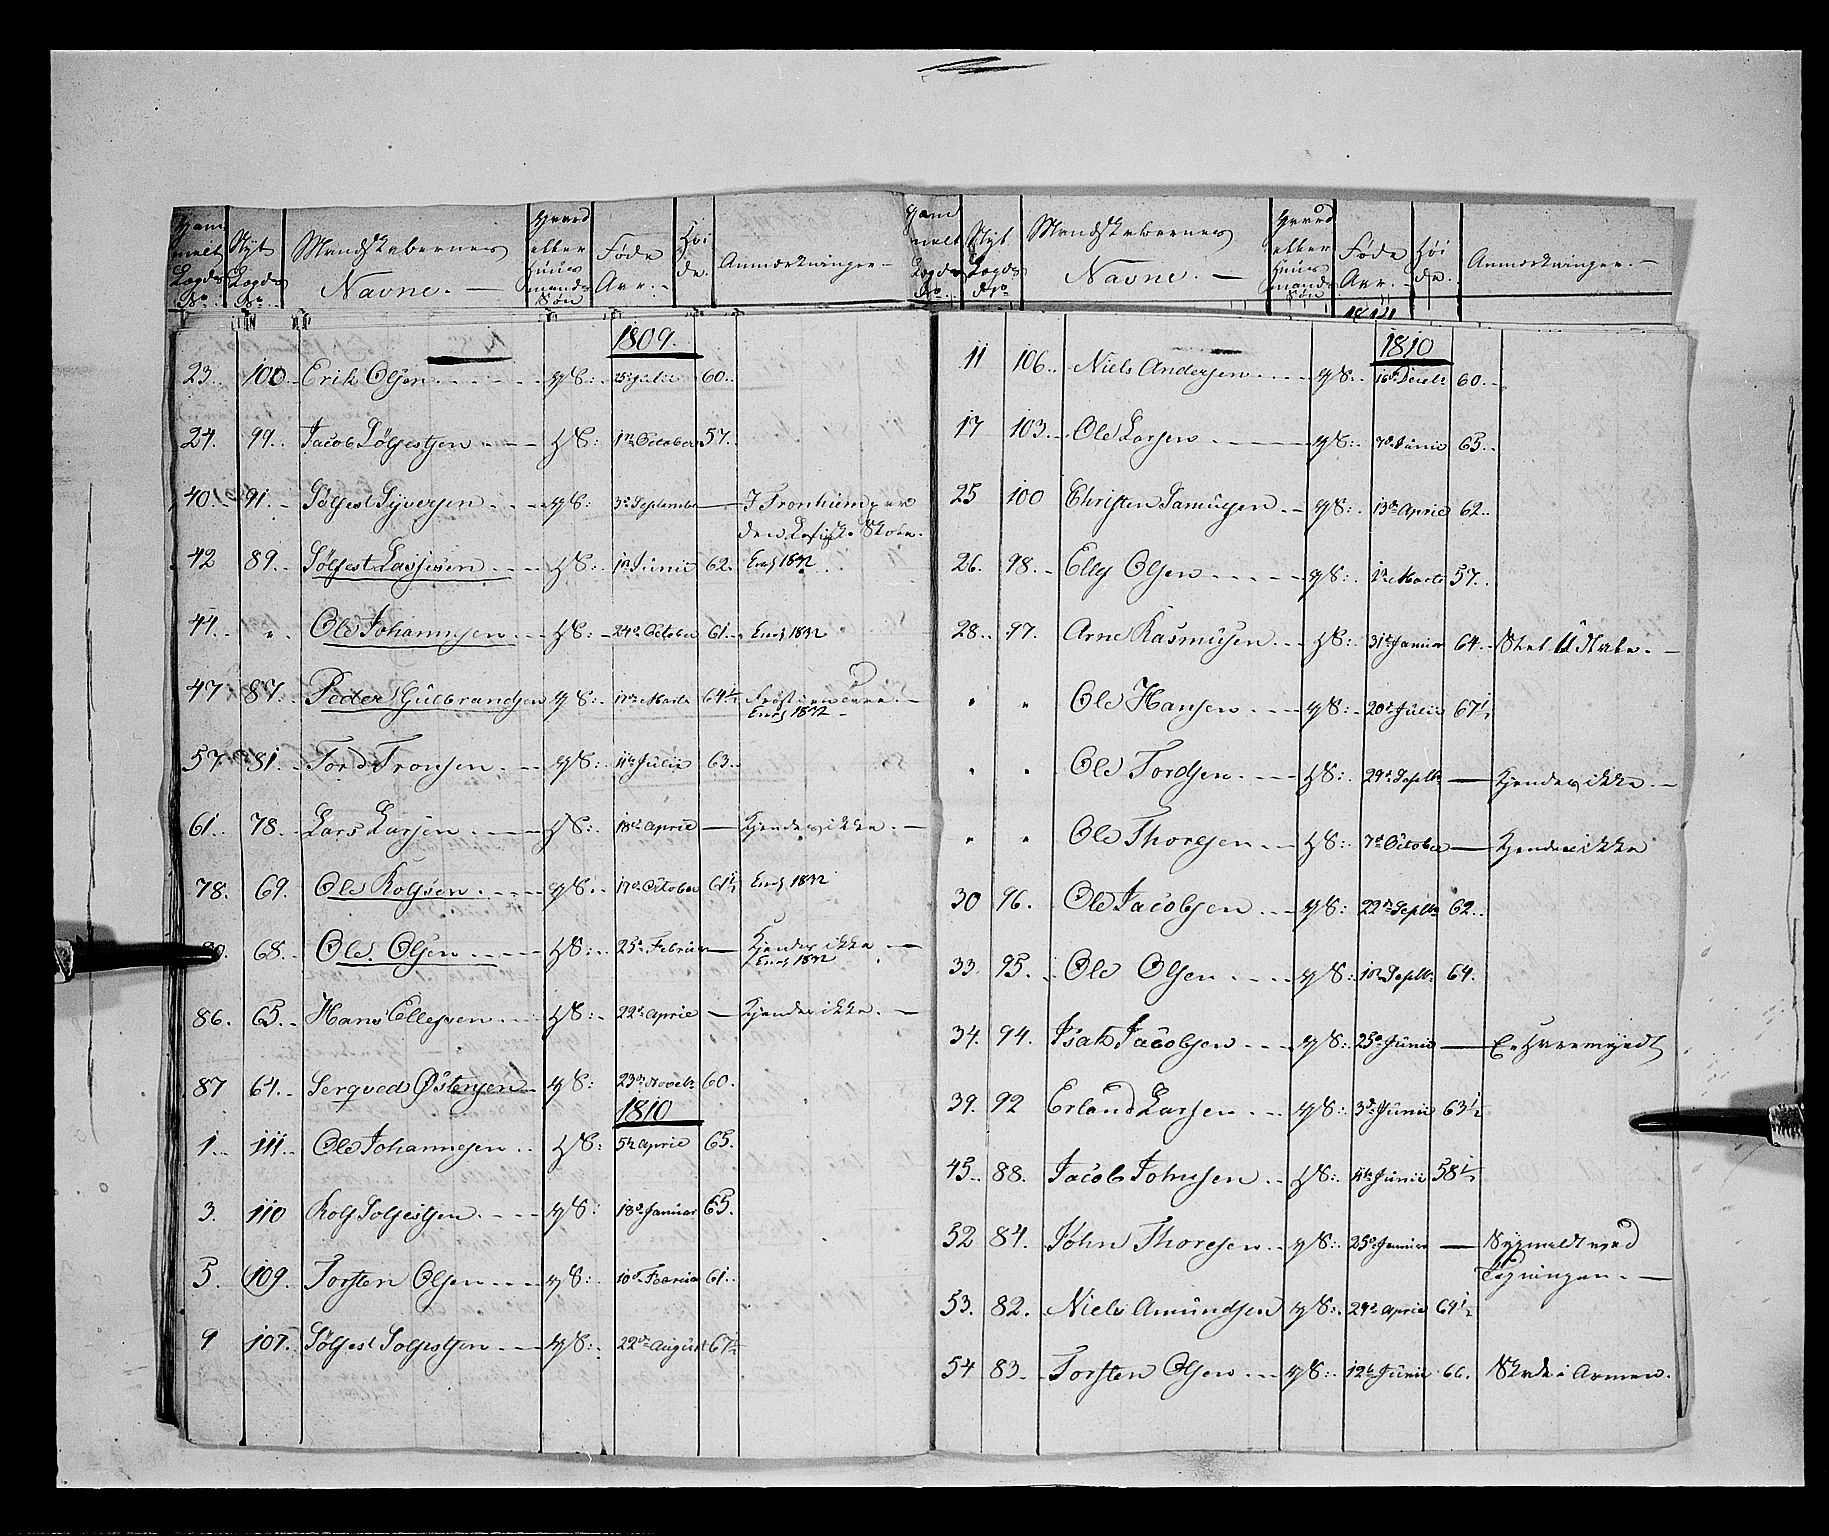 Gammelt Lægds No. Nyt Lægds No. Mandskabernes Navne. — Gaard eller Huusmands Søn Føde Aar. — Høide. Anmærkninger —
1809.
23. 100. Erik Olsen. G S: 25 Julii 60.
24. 99. Jacob Sølfestsen H S: 1ste October 57.
40. 91. Sølfest Syversen G S: 3de September — I Tronhiem paa den
42 89. Sølfest Lassesen H S: 1ste Junii 62. Eng. 1832
44. " Ole Johannesen H S: 24de October 61. Eng. 1832
47 87. Peder Gulbrandsen G S: 17de Marts 64½
Eng. 1832 —
57. 81. Tord Tronsen. G S: 11te Julii 63.
61. 78. Lars Larsen. H S: 18de April — Kjendes ikke. —
78. 69. Ole Rolfsen. G S: 17de October 61½ Eng. 1832
80. 68. Ole Olsen. H S: 25de Februar — Kjendes ikke —
Eng. 1832
86. 65. Hans Ellefsen H S: 22de April — Kjendes ikke. —
87 64. Serqved Østensen G S: 23de Novebr 60.
1810
1. 111. Ole Johannesen H S: 5te April 65.
3. 110 Rolf Solfestsen. G S: 18de Januar 65.
5. 109. Torsten Olsen G S: 10de Febrúar 61.
9 107. Sølfest Solfestsen G S: 22de August 67½
Gammelt Lægds No. Nyt Lægds No. Mandskabernes Navne. — Gaard eller Huusmands Søn Føde Aar. — Høide. Anmærkninger. —
1810
11 106. Niels Andersen G S: 16de Decebr 60.
17 103. Ole Larsen G S: 7de Junii 65.
25 100 Christen Samuelsen G S: 13de April 62.
26. 98. Ellef Olsen G S: 1ste Marts 57.
28. 97. Arne Rasmusen H S: 31te Januar 64.
" " Ole Hansen G S: 20de Julii 67½
" " Ole Tordsen. H S: 29de Septbr — Kjendes ikke. —
" " Ole Thoresen. H S: 7de October — Kjendes ikke
30 96. Ole Jacobsen G S: 22de Septbr 62.
33. 95. Ole Olsen G S: 10de Septbr 64.
34. 94. Isak Jacobsen G S: 25de Junii —
39. 92 Erland Larsen G S: 3de Junii 63½
45. 88. Jacob Johnsen H S: 4de Junii 58½
52 84. John Thoresen G S: 25de Januar — Sygmeldt ved
53. 82. Niels Amundsen G S: 29de April 64½
54 83. Torsten Olsen G S: 12te Junii 66. Skade i Armen.